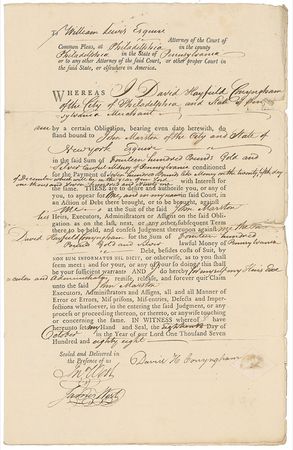 To William Lewis Esquire
Attorney of the Court of
Common Pleas, at Philadelphia in the county
Philadelphia in the State of Pennsylvania
or to any other Attorney of the said Court, or other proper Court in
the said State, or elsewhere in America.
WHEREAS I David Hayfield Conyngham
of the City of Philadelphia and State of Penn
sylvania Merchant
by a certain Obligation, bearing even date herewith, do
stand bound to John Marston of the City and State of
New york Esquire
in the said Sum of fourteen hundred Pounds Gold and
Silver lawful Money of Pennsylvania conditioned
for the Payment of seven hundred Pounds like Money on the twenty fifth day
of December which will be in the year of our Lord
one thousand seven hundred and eighty nine with Interest for
the same. THESE are to desire and authorise you, or any
of you, to appear for me and in my name in the said Court, in
an Action of Debt there brought, or to be brought, against
me at the Suit of the said John Marston
his Heirs, Executors, Administrators or Assigns on the said Obli-
gation as on the last, next, or any other subsequent Term
there to be holden, and confess Judgment thereupon against me the said
David Hayfield Conyngham for the Sum of fourteen hundred
Pounds Gold and Silver lawful Money of Pennsylvania
Debt, besides costs of Suit, by
NON SUM INFORMATUS NIL DICIT, or otherwise, as to you shall
seem meet: and for your, or any of your so doing this shall be
your sufficient warrant. AND I do hereby for myself my Heirs Exe
cutors and Administrators, remise, release, and forever quit Claim
unto the said John Marston his
Executors, Administrators and Assigns, all and all Manner of
Error or Errors, Misprisions, Mis-entries, Defects and Imper-
fections whatsoever, in the entering the said Judgment, or any
process or proceeding thereon, or thereto, or any wise touching
or concerning the same. IN WITNESS whereof I have
hereunto set my Hand and Seal, the eighteenth Day of
October in the Year of our Lord One Thousand Seven
Hundred and eighty eight.
Sealed and Delivered in
the Presence of us
David H Conyngham